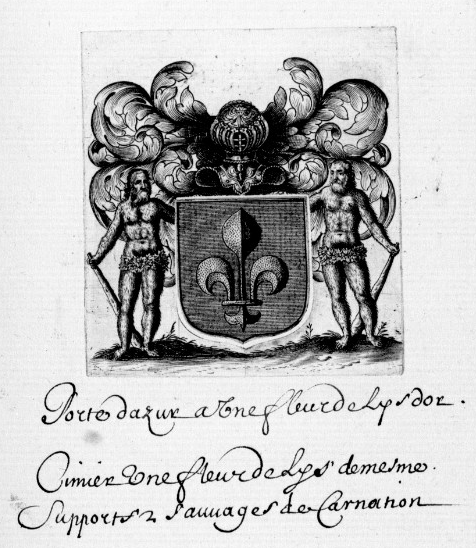 Porte dazur a Vne fleur de Lys dor.
Cimier Vne fleur de Lys de mesme.
Supports 2 sauuages de Carnation